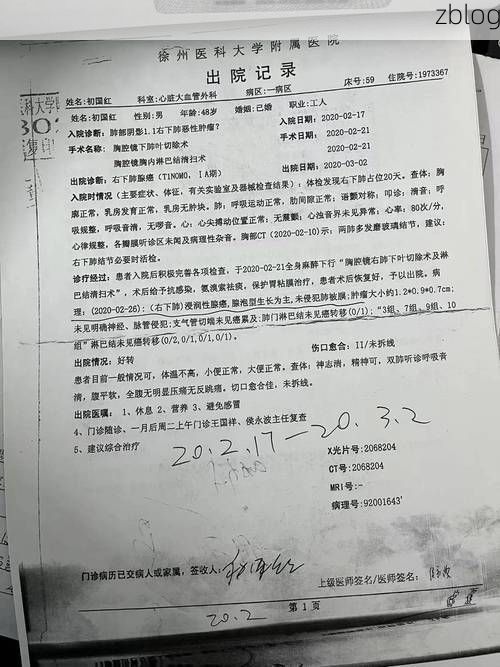 zblog
徐州医科大学附属医院
出院记录
床号:59 住院号:1973367
姓名:初国红 科室:心脏大血管外科 病区:一病区
姓名:初国红 性别:男 年龄:48岁 婚姻:已婚 职业:工人
入院诊断: 肺部阴影1.1右下肺恶性肿瘤? 入院日期: 2020-02-17
手术名称: 胸腔镜下肺叶切除术 手术日期: 2020-02-21
胸腔镜胸内淋巴结清扫术 2020-02-21
出院诊断: 右下肺腺癌 (T1N0M0, IA期) 出院日期: 2020-03-02
入院时情况 (主要症状、体征, 有关实验室及器械检查结果): 体检发现右下肺占位20天。查体: 胸
廓正常, 乳房发育正常, 乳房无肿块。肺: 呼吸运动正常, 肋间隙正常; 语颤对称; 叩诊: 清音; 呼
吸规整, 呼吸音清, 无啰音。心: 心尖搏动位置正常; 无震颤; 心浊音界未见异常; 心率: 80次/分,
心律规整, 各瓣膜听诊区未闻及病理性杂音。胸部CT (2020-02-10)示: 两肺多发磨玻璃结节, 建议:
右下肺结节必要时活检。
诊疗经过: 患者入院后积极完善各项检查, 于2020-02-21全身麻醉下行 "胸腔镜右肺下叶切除术及淋
巴结清扫术", 术后给予抗感染, 氨溴索祛痰, 保护胃粘膜治疗, 患者术后恢复好, 予以出院。病
理: (2020-02-26): (右下肺)浸润性腺癌, 腺泡型生长为主, 未侵犯肺被膜; 肿瘤大小约1.2*0.9*0.7cm;
未见明确神经、脉管侵犯; 支气管切端未见癌累及; 肺门淋巴结未见癌转移(0/1); "3组、7组、9组、10
组"淋巴结未见癌转移(0/2, 0/1, 0/1, 0/1)。
出院情况: 好转 伤口愈合: II/未拆线
患者目前一般情况可, 体温不高, 小便正常, 大便正常。查体: 神志清, 精神可, 双肺听诊呼吸音
清, 腹平软, 全腹无明显压痛无反跳痛。切口愈合佳, 未拆线。
出院医嘱: 1、休息 2、营养 3、避免感冒
4、门诊随诊、一月后周二上午门诊王国祥、侯永波主任复查
5、建议综合治疗
20.2.17—20.3.2
X光片号:2068204
CT号:2068204
MRI号:-
病理号:92001643'
门诊病历已交病人或家属, 签收人:
上级医师签名/医师签名:
第 1 页
20.2